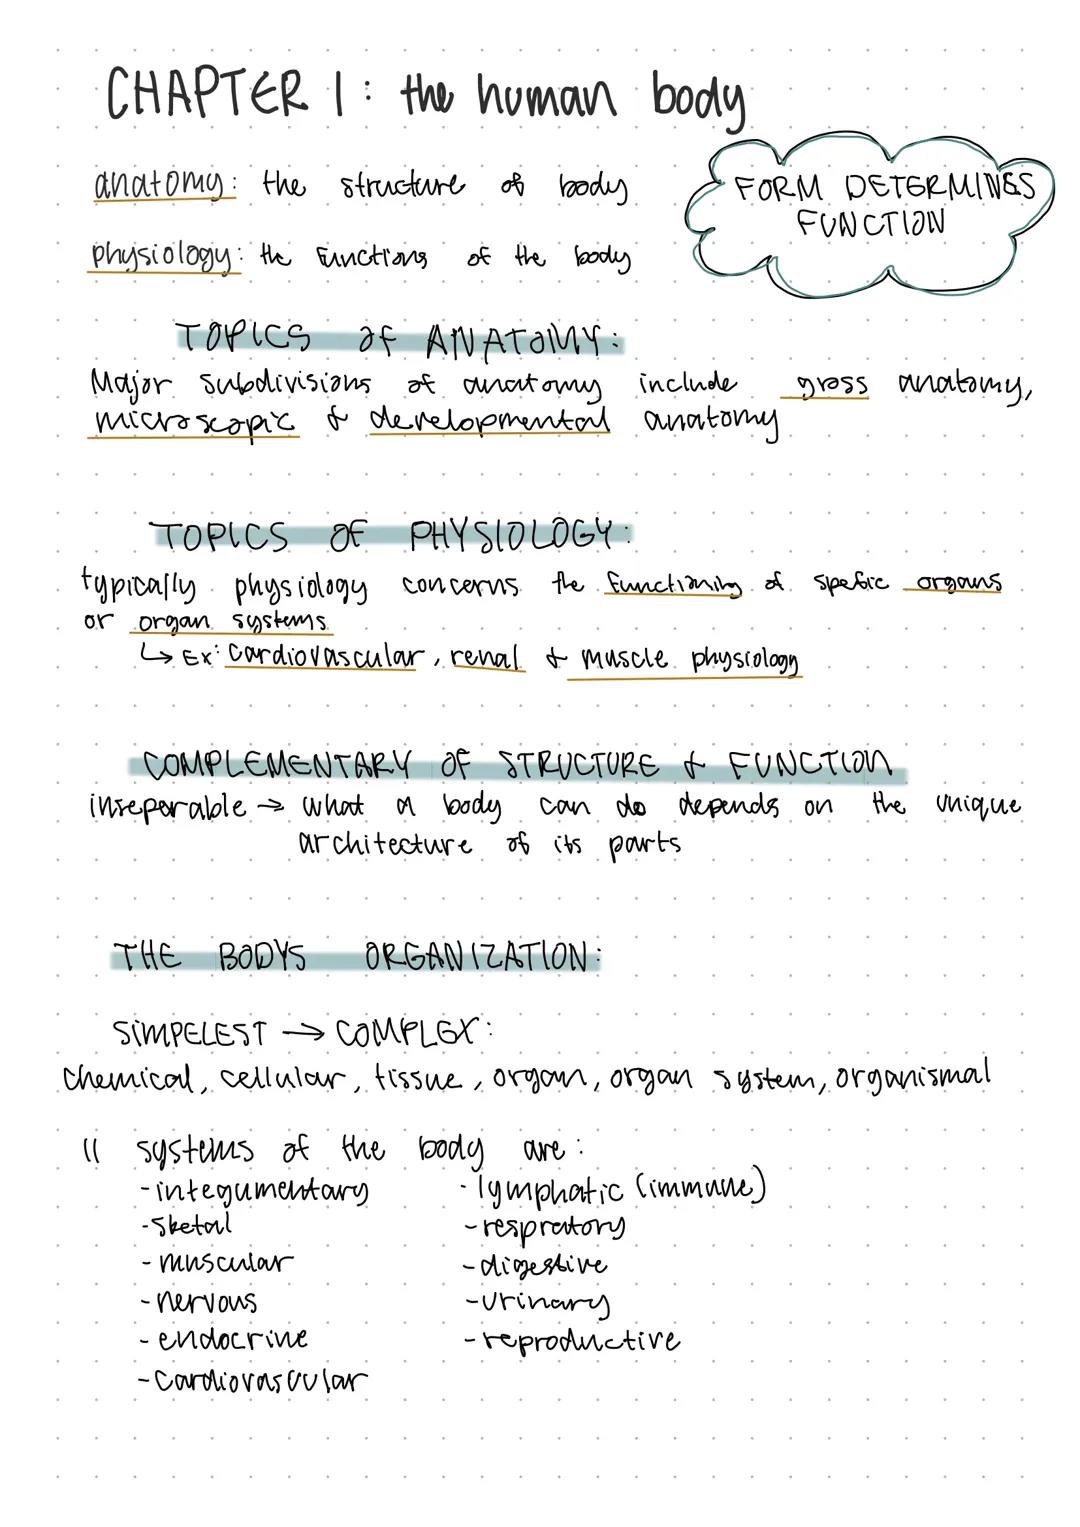 CHAPTER 1: the human body
anatomy: the structure of body
FORM DETERMINES
FUNCTION
physiology: the functions of the body
TOPICS of ANATOMY:
Major subdivisions of anatomy include gross anatomy,
microscopic & developmental anatomy
TOPICS OF PHYSIOLOGY:
typically physiology concerns the functioning of spefic organs
or organ systems
↳ Ex: cardiovascular, renal & muscle physiology
COMPLEMENTARY OF STRUCTURE & FUNCTION
inseperable → what a body can do depends on the unique
architecture of its parts
THE BODYS ORGANIZATION:
SIMPELEST → COMPLEX:
chemical, cellular, tissue, organ, organ system, organismal
11 systems of the body are:
- integumentary
- sketal
- muscular
- nervous
- endocrine
- cardiovascular
- lymphatic (immune)
- respratory
- digestive
- urinary
- reproductive